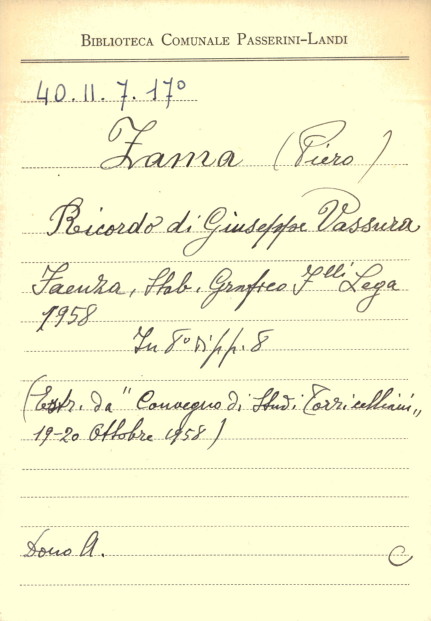 BIBLIOTECA COMUNALE PASSERINI-LANDI
40.II.7.17°
Zama (Piero)
Ricordo di Giuseppe Vassura
Faenza, Stab. Grafico F.lli Lega
1958
In 8° di pp. 8
(Estr. da "Convegno di Studi Torricelliani"
19-20 Ottobre 1958)
Dono A.
C